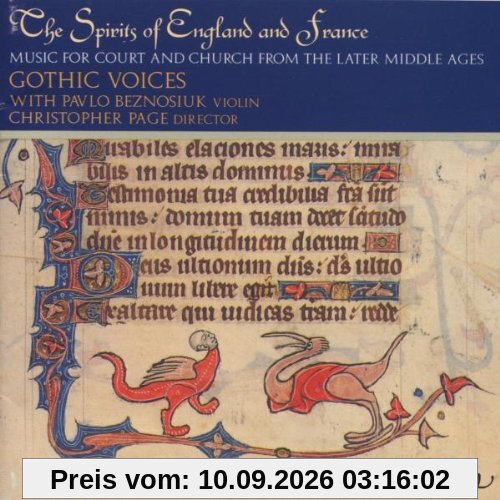 The Spirits of England and France
MUSIC FOR COURT AND CHURCH FROM THE LATER MIDDLE AGES
GOTHIC VOICES
WITH PAVLO BEZNOSIUK VIOLIN
CHRISTOPHER PAGE DIRECTOR
Mirabiles elaciones maris: mira
bilis in altis dominus
Testimonia tua credibilia fca sut
nimis: domum tuam decet
dne in longitudinem dierum.
Deus ultionum dns: ds ultio
num libere egit
Exaltare qui iudicas tram: rede
Preis vom: 10.09.2026 03:16:02